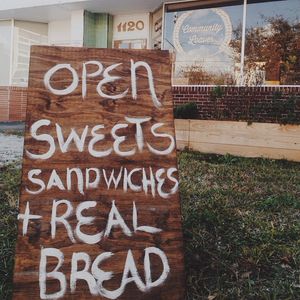 1120
Community
Loaves
OPEN
SWEETS
SANDWICHES
+ REAL
BREAD